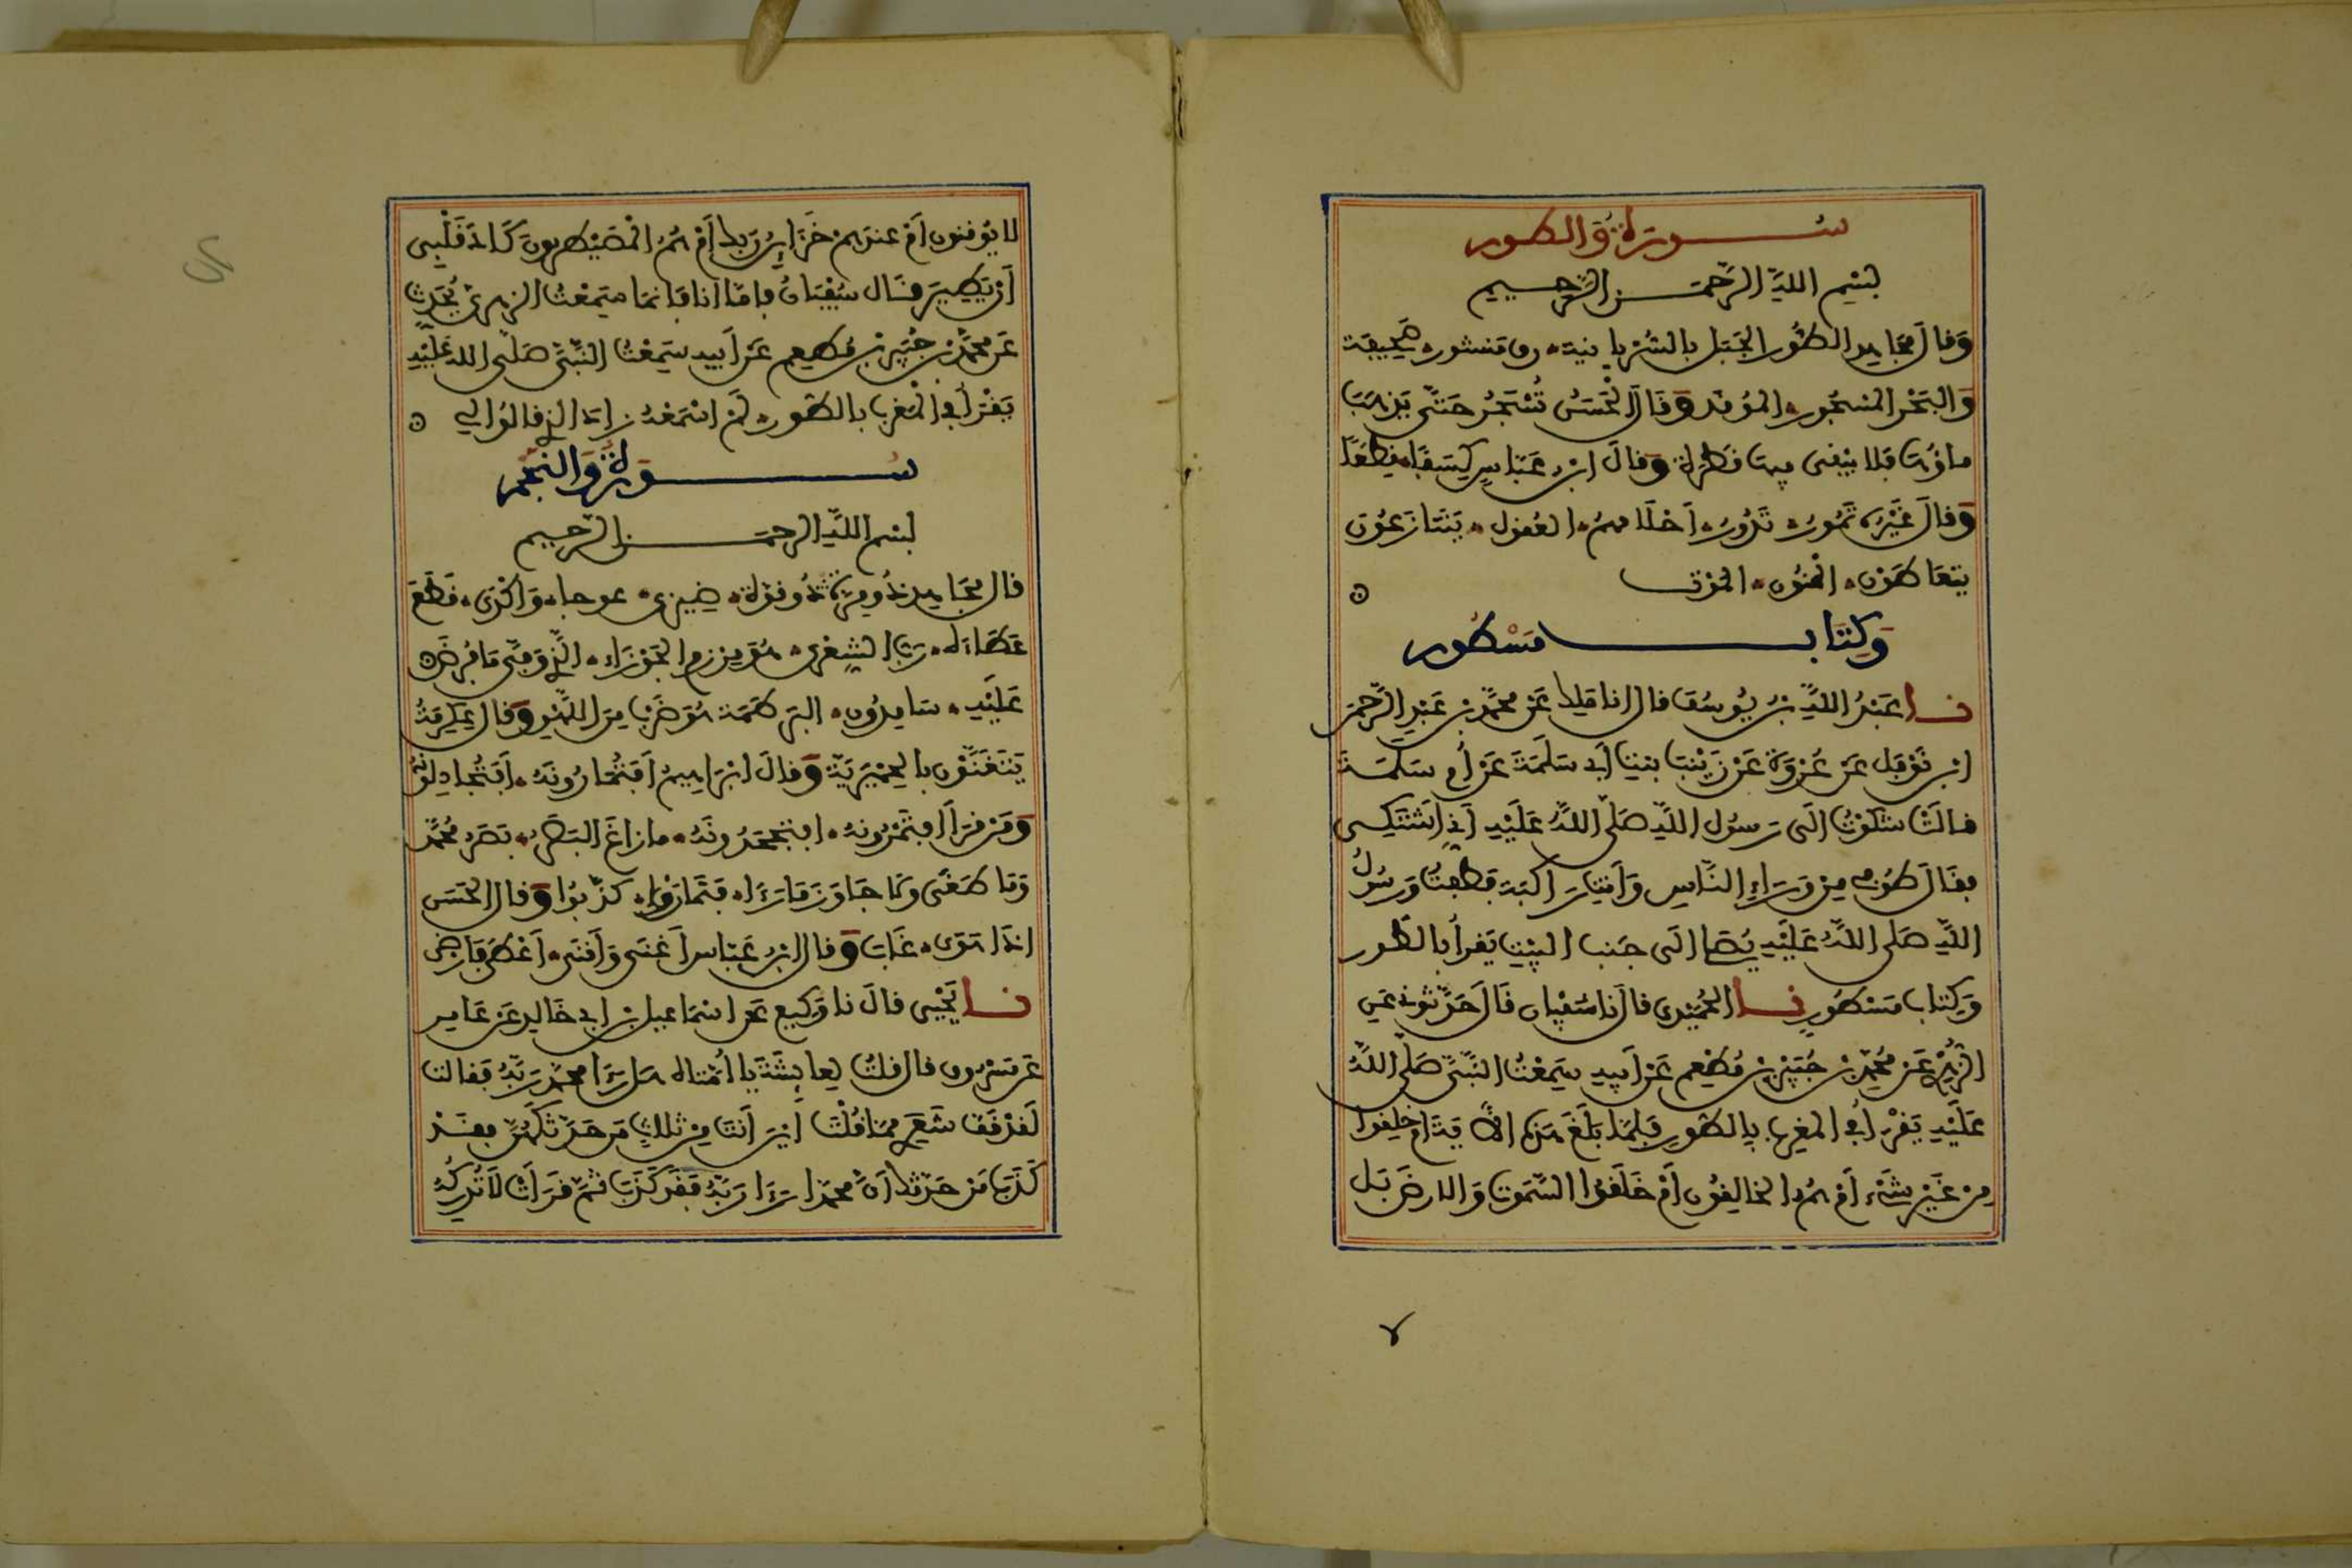 سُورَةُ وَالطور
بسْمِ اللَّهِ الرَّحْمَنِ الرَّحِيمِ
وَقالَ مجَاهِد الطُّورُ الجَبَل بِالسُّرْيَانِيَة رق مَنشور صَحِيفَة
وَالبَحْرِ المَسْجُورِ المُوقَد وَقَالَ الحَسَنُ تُسْجَرُ حَتَّى يَذهَبَ
ماؤُهَا فَلا يَبْقَى فِيهَا قَطْرَة وَقالَ ابْن عَبَّاسٍ كِسَفًا قِطَعًا
وَقالَ غَيْرُه تَمُورُ تَدُورُ أَحْلَامهمُ العُقول يَتَنَازَعُونَ
يتعَاطَوْن المَنُون المَوْت
وَكِتَاب مَسْطُور
نا عَبْدُ اللَّهِ بْنُ يُوسُفَ قال انا مَلِك عَن مُحمَّد بْنِ عَبْدِ الرَّحْمَن
ابْنِ نَوْفَل عَن عُرْوَةَ عَن زَيْنَبَ بنت أَبِي سَلَمَةَ عَن أُم سَلَمَة
قالَتْ شَكَوْتُ إلَى رَسُول اللَّهِ صَلَّى اللَّهُ عَلَيْهِ أَنِّي أَشْتَكِي
فقَالَ طُوفِي مِنْ وَرَاءِ النَّاسِ وَأَنتِ رَاكِبَة فَطُفتُ وَرَسُولُ
اللَّهِ صَلى اللَّهُ عَلَيْهِ يُصَلي إلَى جَنب البَيْتِ يَقرأُ بالطُّور
وَكِتاب مَسْطُورٍ نا الحُمَيْدِي قالَ نا سُفيَان قَالَ حَدَّثُونِي عَن
الزُّهْرِي عَن مُحمَّد بْنِ جُبَيْرِ بْنِ مُطْعِمٍ عَن أَبِيهِ سَمِعْتُ النَّبِيَّ صَلَّى اللَّهُ
عَلَيْهِ يَقْرَأُ فِي المَغرِب بِالطُّورِ فَلَمَّا بَلَغَ هَذِهِ الآيَةَ أَمْ خُلِقُوا
مِنْ غَيْرِ شَيْءٍ أَمْ هُمُ الخَالِقُونَ أَمْ خَلَقُوا السَّمَوَاتِ وَالارْضَ بَل
لا يُوقِنُونَ أَمْ عِندَهُمْ خَزَائِنُ رَبِّكَ أَمْ هُمُ المُصَيْطِرُونَ كَادَ قَلْبِي
أَنْ يَطِيرَ قَال سُفْيَانُ فَأَمَّا أَنا فَإنَّمَا سَمِعْتُ الزهرِيَّ يُحَدِّثُ
عَن مُحمَّد بْنِ جُبَيْرِ بْنِ مُطْعِمٍ عَن أَبِيهِ سَمِعْتُ النَّبِيَّ صَلَّى اللهُ عَلَيْهِ
يَقْرَأُ فِي المَغْرِب بالطُّورِ لَمْ أَسْمَعْهُ زَادَ الَّذِي قَالُوا لِي
سُورَةُ وَالنَّجْمِ
بسْم اللَّهِ الرحمَنِ الرَّحِيمِ
قال مُجَاهِد ذُو مِرَّةٍ ذُو قُوَّة ضِيزَى عَوجاء وَأَكْدَى قَطَعَ
عَطَاءَه رَبُّ الشِعْرَى هُوَ مِرْزَم الجَوْزَاءِ الَّذِي وَفَّى مَا فُرِضَ
عَلَيْهِ سَامِدُونَ البَرْطَمَة هُوَ ضَرْبٌ مِنَ اللَّهْوِ وَقال عِكْرِمَةُ
يَتَغَنَّوْن بالحِمْيَرِيَّة وَقالَ ابْرَاهِيمُ أَفَتُمَارُونَهُ أَفَتُجَادِلُونَهُ
وَمَن قَرَأَ أَفَتَمْرُونَهُ أفتجحَدُونَهُ ما زاغَ البَصَرُ بَصَرُ مُحمَّد
وَمَا طَغَى وَلا جَاوَزَ مَا رَءَاه فَتَمَارَوْا كَذَّبُوا وَقال الحَسَن
إِذَا هَوَى غَابَ وَقال ابْنُ عَبَّاس أَغْنَى وَأَقنَى أَعْطَى فَأَرضى
نا يَحْيَى قالَ نا وَكِيع عَن اسْمَاعِيل بْنِ أبِي خَالِد عَن عَامِر
عَن مَسْرُوق قال قلتُ لِعائِشَةَ يا أُمَّتَاه هَل رَءَا مُحمَّد رَبَّهُ فقالت
لَقَدْ قَفَّ شَعَرِي مِمَّا قُلْتَ أَيْنَ أَنتَ مِنْ ثلاث مَن حَدَّثَكَهُنَّ فقَدْ
كَذَبَ مَن حَدَّثَكَ أَنَّ مُحمَّدا رَءَا رَبَّهُ فقَد كَذَبَ ثُمَّ قَرَأَتْ لَا تُدْرِكُهُ